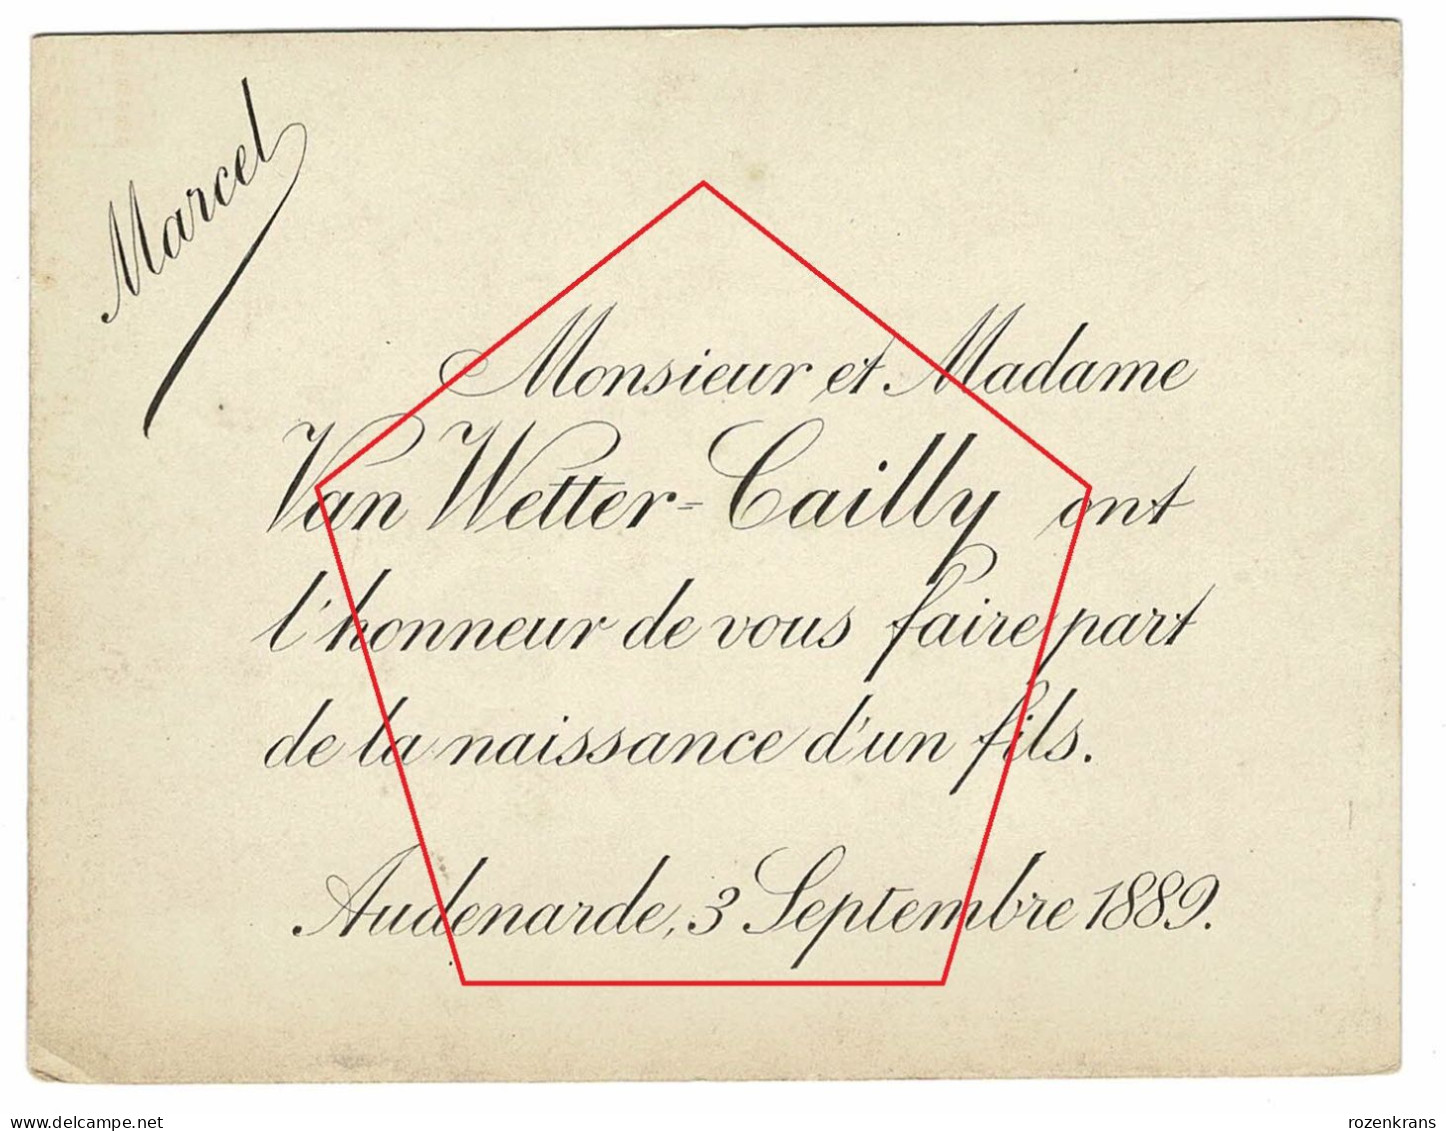 Marcel
Monsieur et Madame
Van Wetter-Cailly ont
l'honneur de vous faire part
de la naissance d'un fils.
Audenarde, 3 Septembre 1889.
www.delcampe.net
rozenkrans